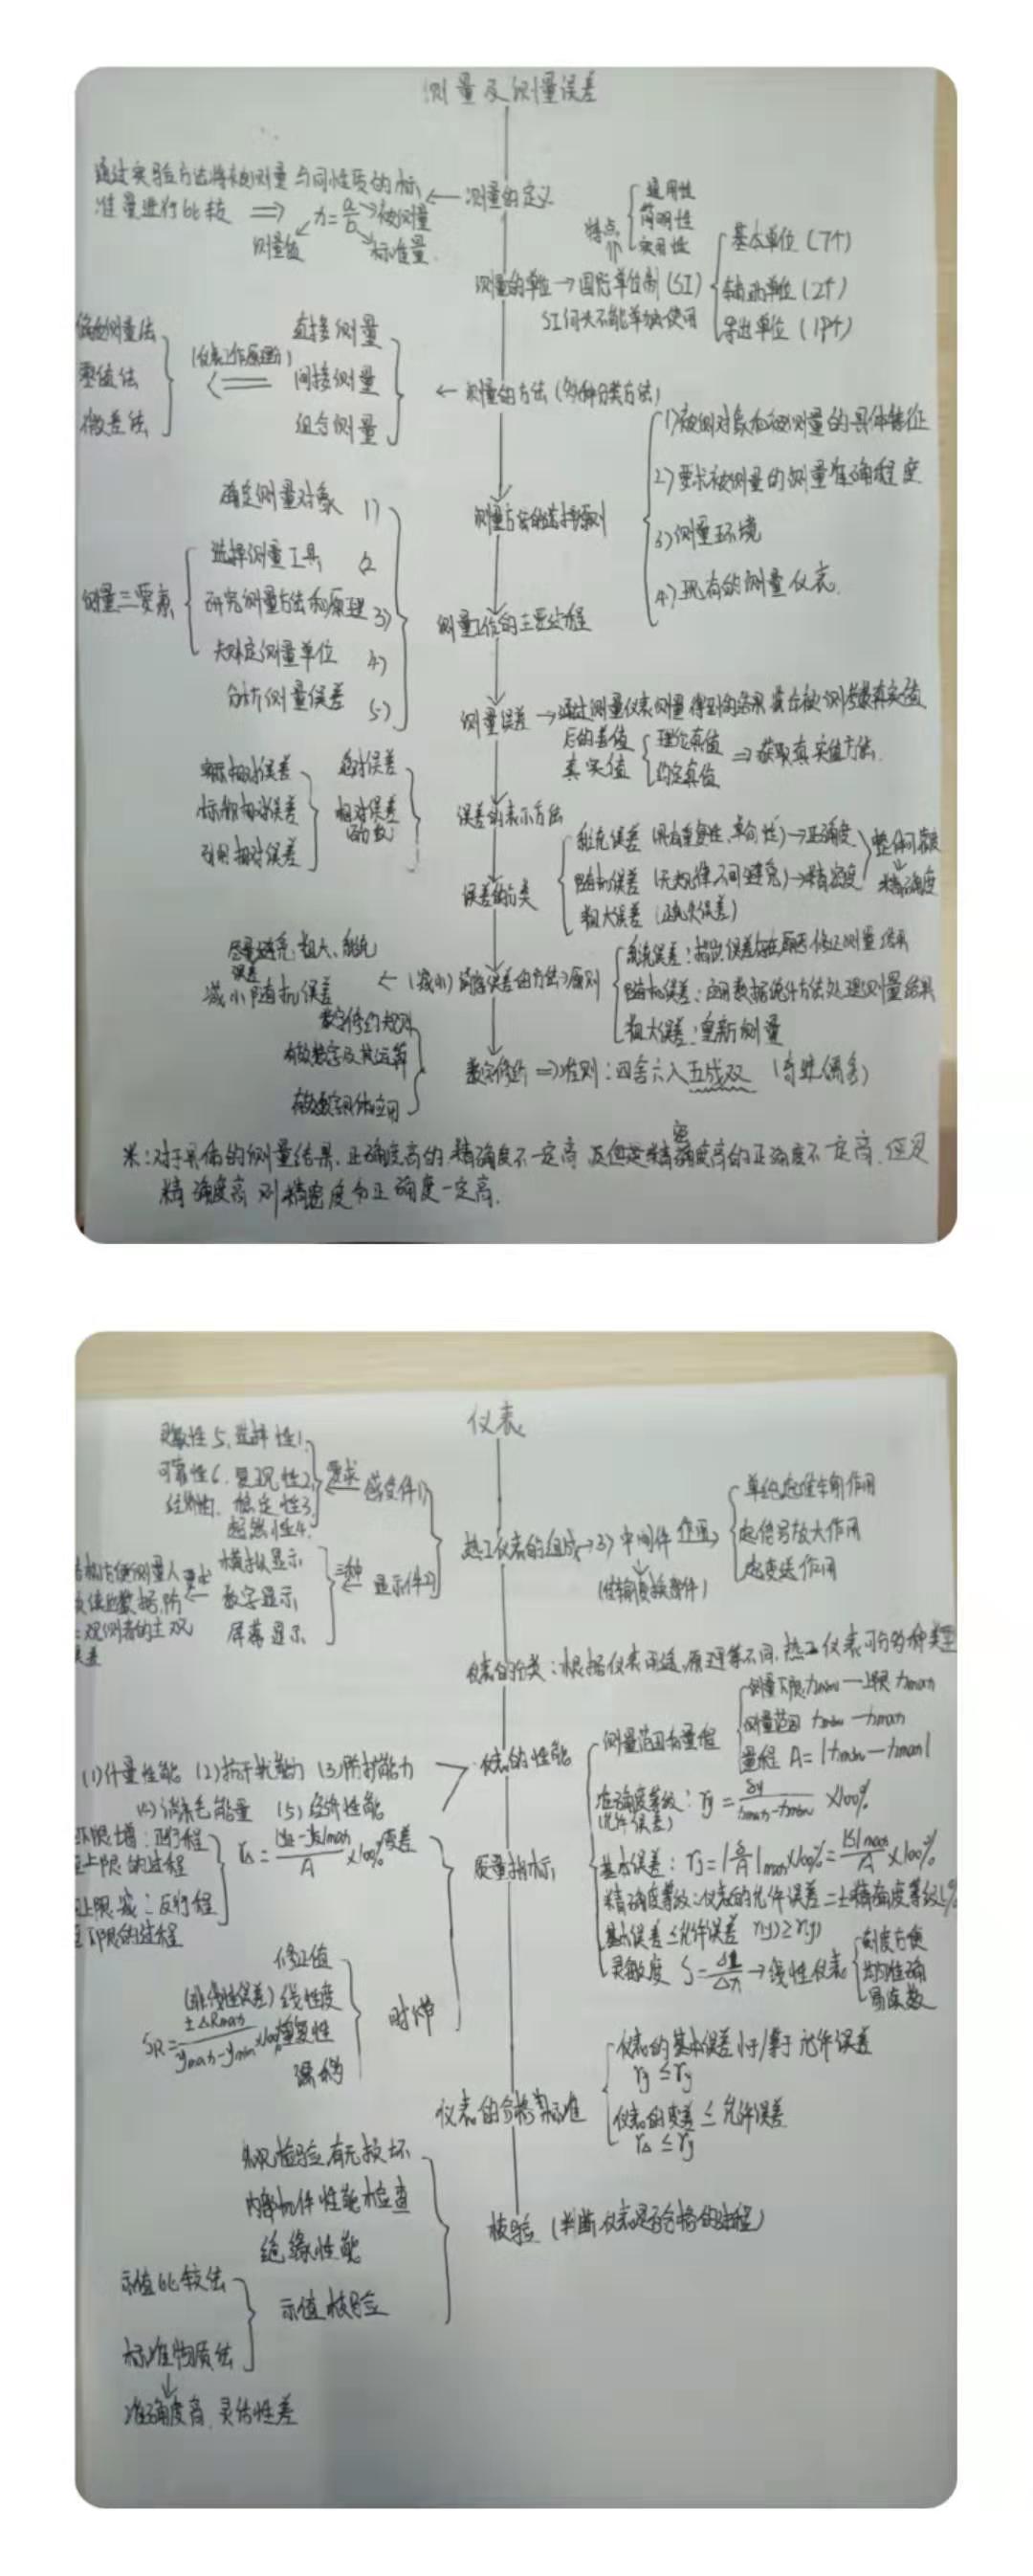 测量及测量误差
通过实验方法将被测量与同性质的标
准量进行比较 ⇒ n=a/b →被测量
测量值 标准量
← 测量的定义
特点
通用性
简明性
实用性
测量的单位 → 国际单位制(SI)
SI词头不能单独使用
基本单位(7个)
辅助单位(2个)
导出单位(19个)
测量法
零值法
微差法
(仪表工作原理分)
直接测量
间接测量
组合测量
← 测量的方法(各种分类方法)
测量方法的选择原则
1)被测对象和被测量的具体特征
2)要求被测量的测量准确程度
3)测量环境
4)现有的测量仪表.
测量三要素
确定测量对象 1)
选择测量工具 2
研究测量方法和原理 3)
测量单位 4)
分析测量误差 5)
测量工作的主要过程
测量误差 → 通过测量仪表测量得到的结果 被测 真实值
后的差值
真实值
理论真值
约定真值
⇒ 获取真实值方法.
实际相对误差
标称相对误差
引用相对误差
绝对误差
相对误差
误差的表示方法
误差的分类
系统误差 (具有重复性、单向性)→正确度
随机误差 (无规律不可避免)→精密度
粗大误差 (过失误差)
精确度
尽量避免粗大、系统
误差
减小随机误差
← (减小)消除误差的方法原则
系统误差: 误差存在原因 修正测量结果
随机误差:应用数据统计方法处理测量结果
粗大误差:重新测量
数字修约规则
有效数字及其运算
有效数字 应用
数字修约 ⇒ 准则:四舍六入五成双 (奇进偶舍)
※:对于具体的测量结果,正确度高的精确度不一定高 反但是精密度高的正确度不一定高,但是
精确度高 则精密度和正确度一定高.
仪表
灵敏性5. 选择性1.
可靠性6. 复现性2.
经济性. 稳定性3.
超然性4.
要求
感受件1)
模拟显示
数字显示
屏幕显示
三种
显示件2)
要求
方便测量人
数据,防
观测者的主观
热工仪表的组成 → 3)中间件 作用
(传输变换部件)
单纯起传输作用
起信号放大作用
起变送作用
仪表的分类:根据仪表用途、原理等不同,热工仪表可分多种类型
仪表的性能
(1)计量性能 (2)抗干扰能力 (3)防护能力
(4)消耗能量 (5)经济性能
质量指标
测量范围和量程
测量下限xmin—上限xmax
测量范围 xmin—xmax
量程 A=|xmin—xmax|
准确度等级: ry=δy/(xmax-xmin)×100%
(允许误差)
基本误差: rj=|δ/A|max×100%=|δ|max/A×100%
精确度等级:仪表的允许误差=±精确度等级%
基本误差≤允许误差
灵敏度 S=ΔL/Δx → 线性仪表
刻度方便
均匀准确
易读数
下限增:正行程
至上限的过程
上限减:反行程
至下限的过程
rΔ=|yz-yf|max/A×100% 变差
修正值
(非线性误差)线性度
SR=±ΔRmax/(ymax-ymin)×100% 重复性
漂移
时滞
仪表的合格标准
仪表的基本误差小于/等于允许误差
rj≤ry
仪表的变差≤允许误差
rΔ≤ry
外观检验有无损坏
内部机件性能检查
绝缘性能
示值校验
示值比较法
标准物质法
准确度高、灵活性差
校验(判断仪表是否合格的过程)